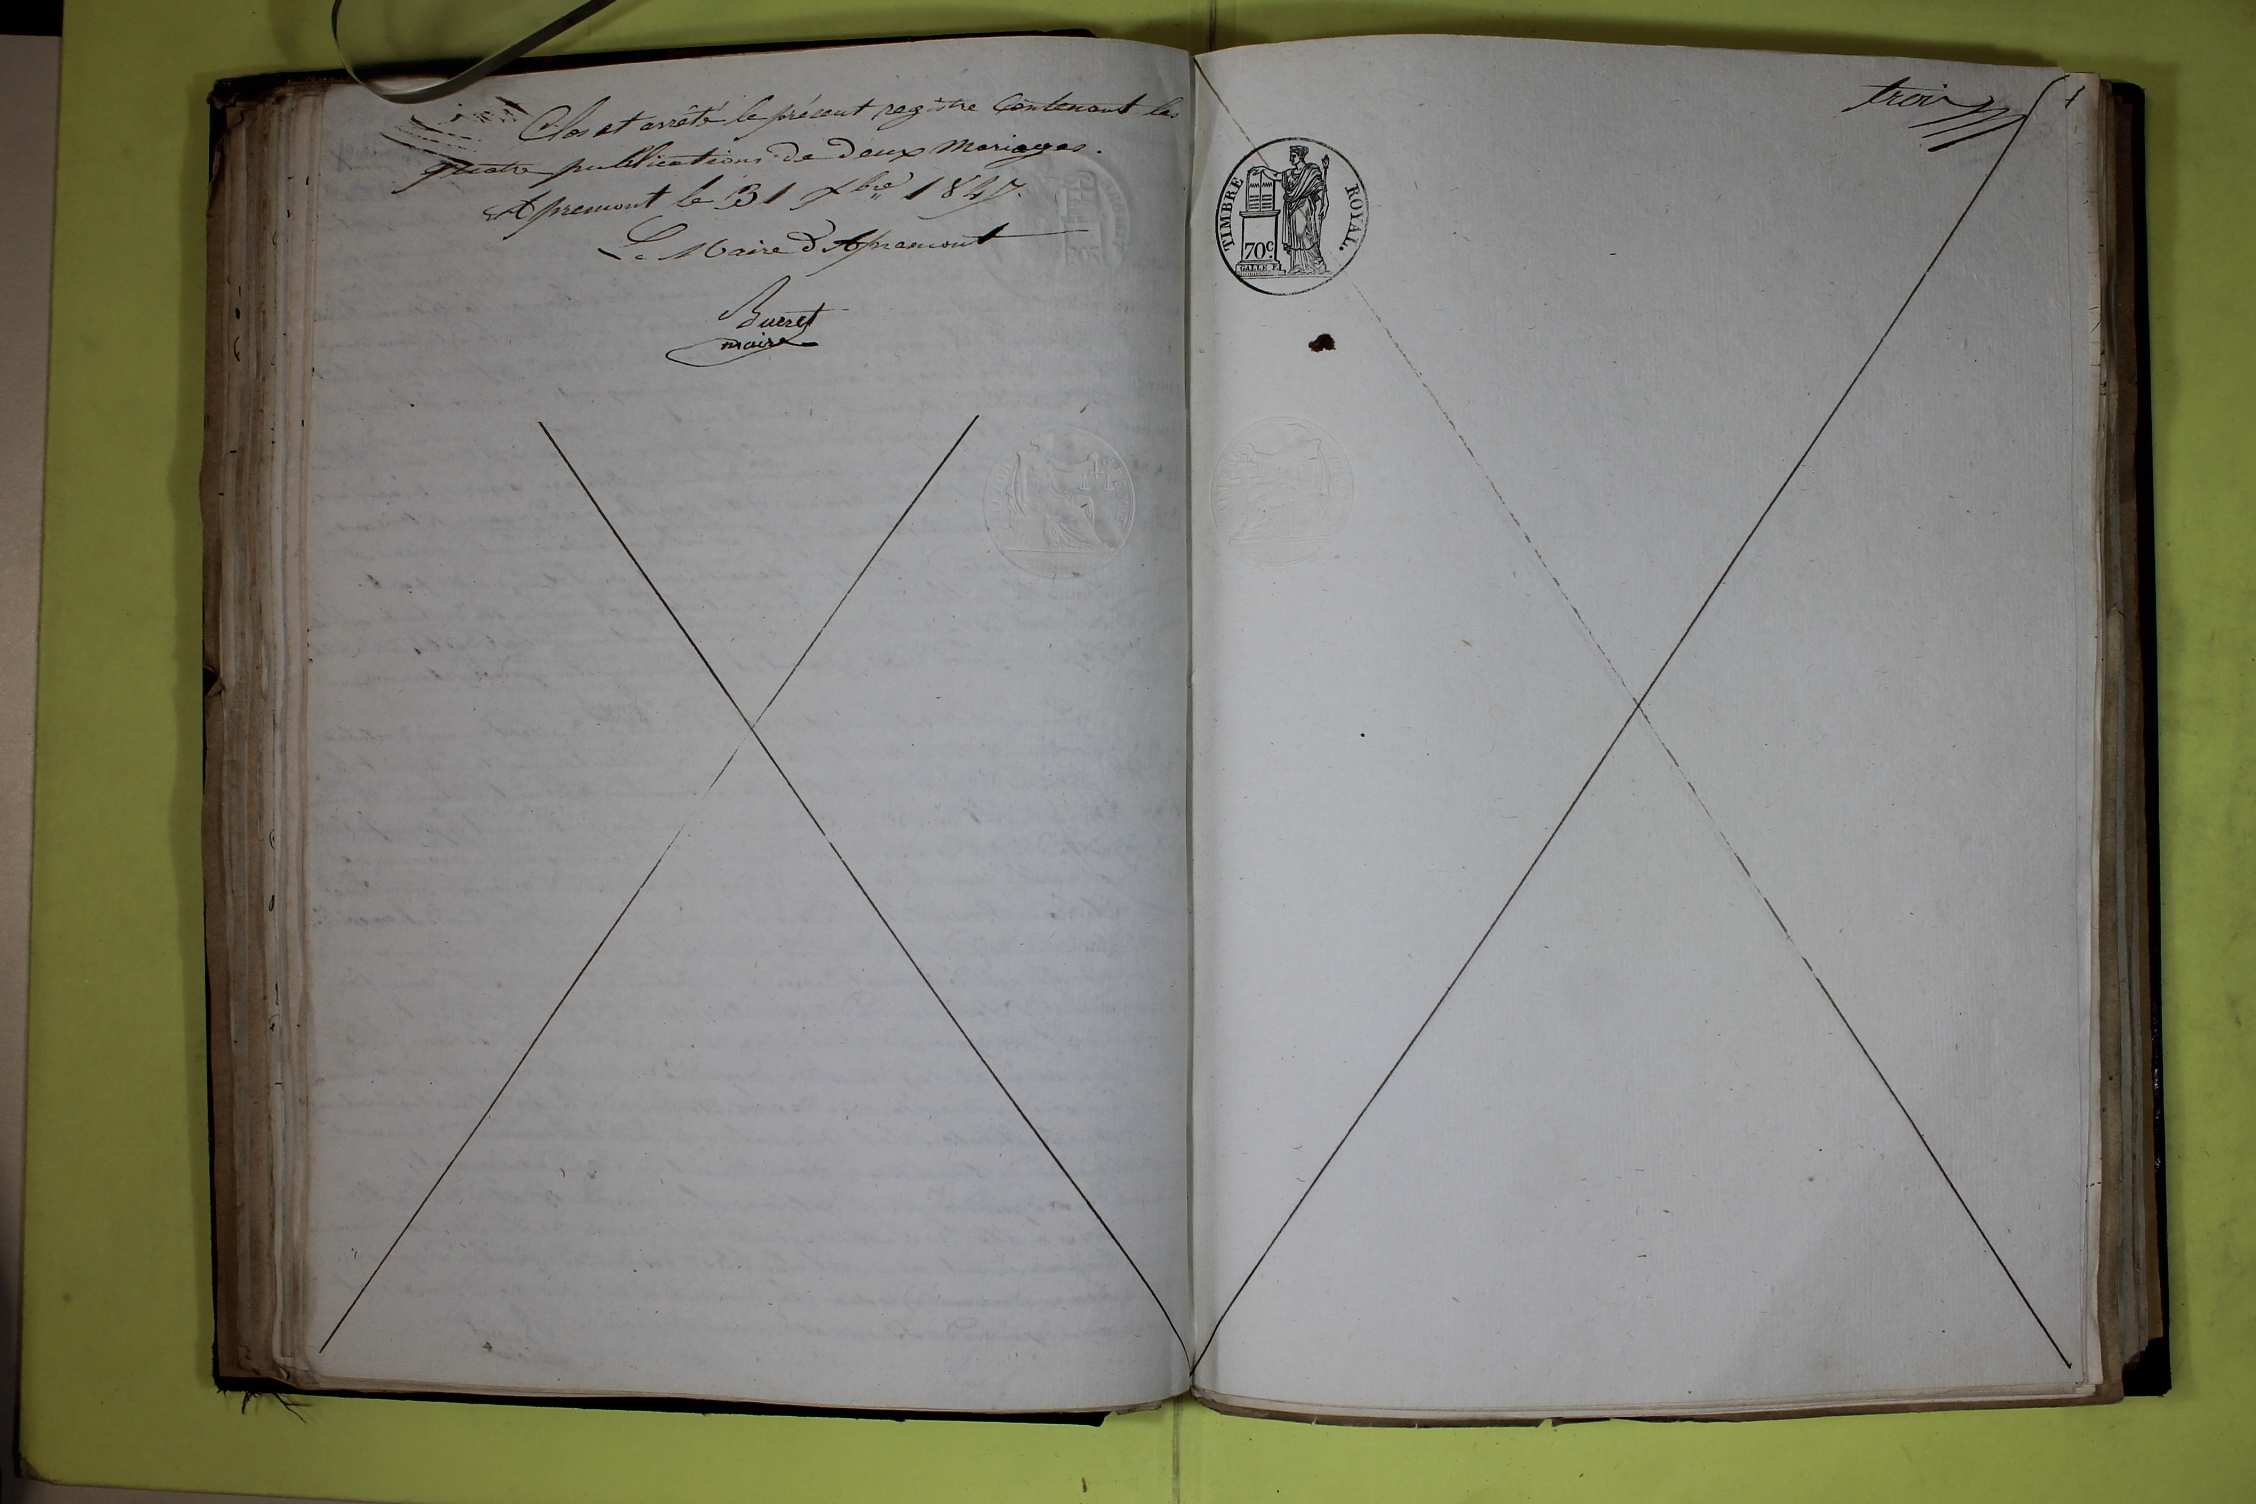 Clos et arrêté le présent registre contenant les
quatre publications de deux mariages.
Apremont le 31 Xbre 1847.
Le Maire d'Apremont
Bueret
maire
trois
TIMBRE ROYAL.
70c